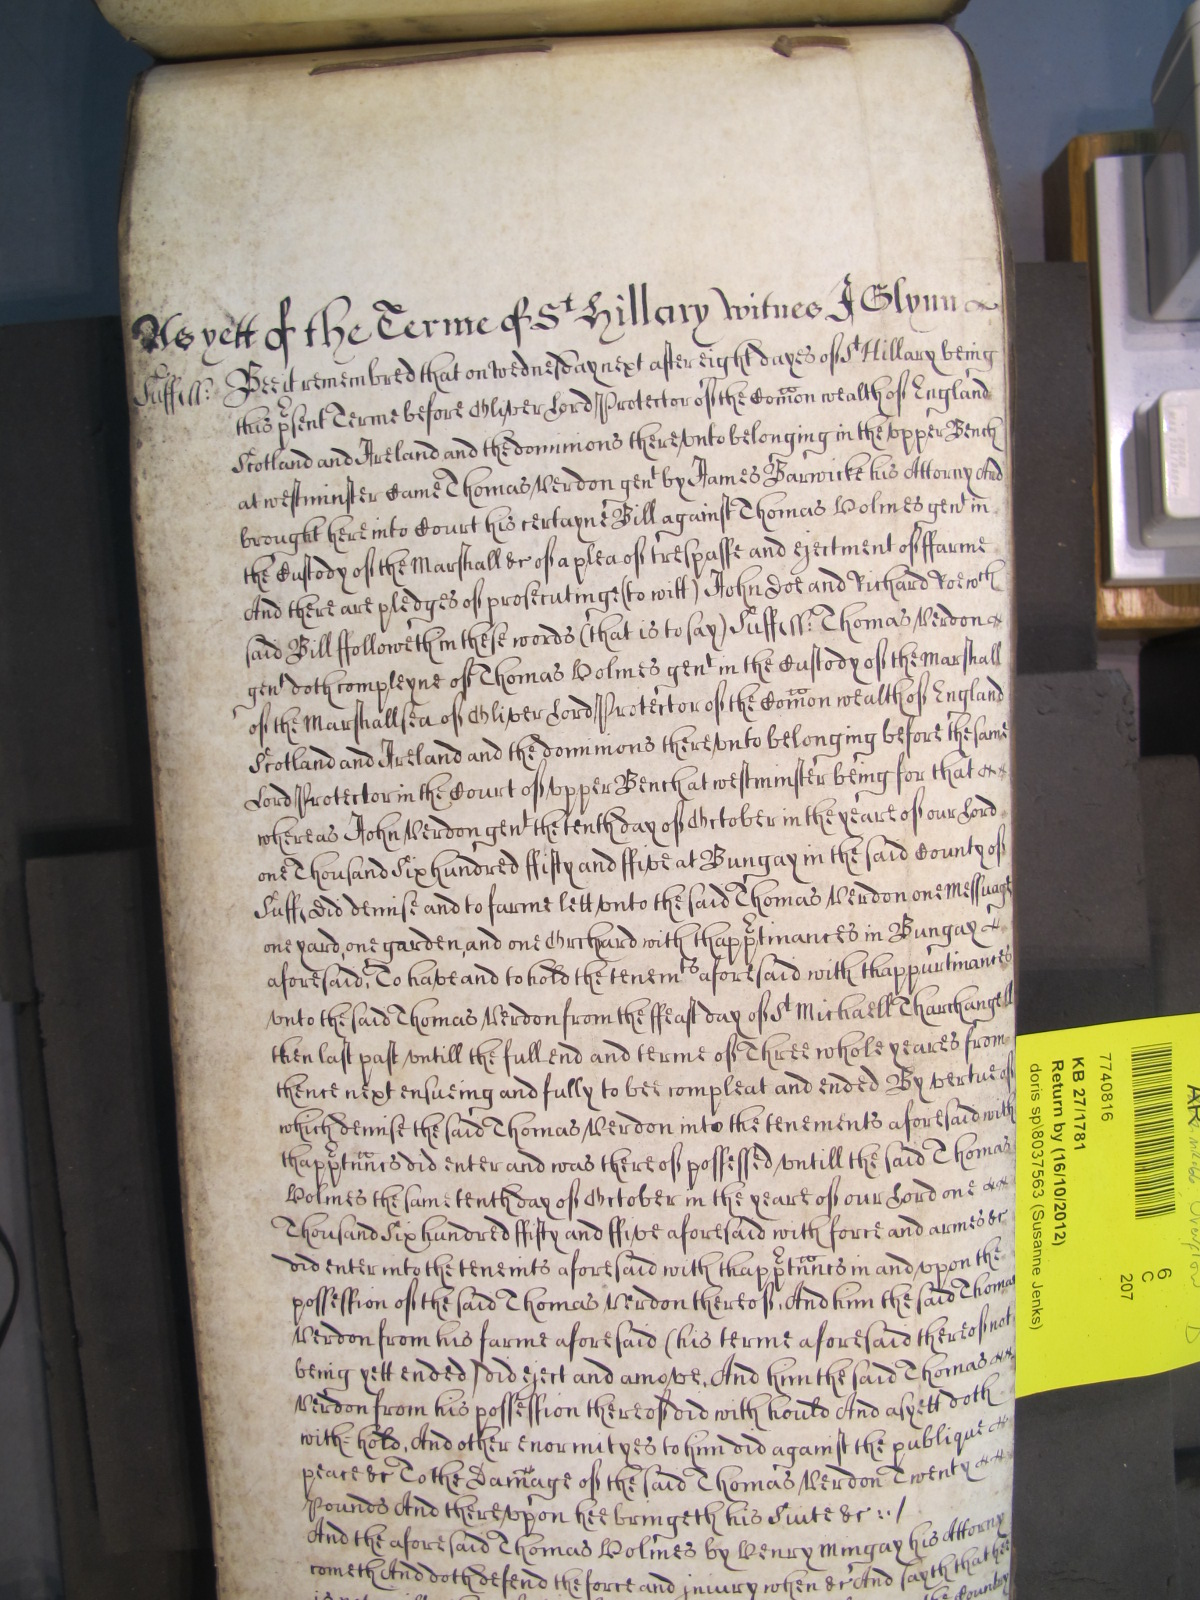 As yett of the Terme of St Hillary witnes J Glynn
Suff ss: Bee it remembred that on wednesday next after eight dayes of St Hillary being
this psent Terme before Oliver Lord Protector of the Comon wealth of England
Scotland and Ireland and the dominions there vnto belonging in the vpper Bench
at westminster Came Thomas Verdon gent by James Barwicke his Attorny And
brought here into Court his certayne Bill against Thomas Holmes gent in
the Custody of the Marshall &c of a plea of trespasse and ejectment of ffarme
And there are pledges of prosecutinge (to witt) John Doe and Richard Roe wch
said Bill ffolloweth in these words (that is to say) Suff ss: Thomas Verdon
gent doth compleyne of Thomas Holmes gent in the Custody of the Marshall
of the Marshallsea of Oliver Lord Protector of the Comon wealth of England
Scotland and Ireland and the dominions there vnto belonging before the same
Lord Protector in the Court of vpper Bench at westminster being for that
whereas John Verdon gent the tenth day of October in the yeare of our Lord
one Thousand Six hundred ffifty and ffive at Bungay in the said County of
Suff did demise and to farme lett vnto the said Thomas Verdon one Messuage
one yard, one garden, and one Orchard with thapptinances in Bungay
aforesaid, To have and to hold the tenemts aforesaid with thappurtinances
vnto the said Thomas Verdon from the ffeast day of St Michaell Tharchangell
then last past vntill the full end and terme of Three whole yeares from
thence next ensueing and fully to bee compleat and ended By vertue of
which demise the said Thomas Verdon into the tenements aforesaid with
thapptnncs did enter and was thereof possessed vntill the said Thomas
Holmes the same tenth day of October in the yeare of our Lord one
Thousand Six hundred ffifty and ffive aforesaid with force and armes &c
did enter into the tenemts aforesaid with thapptnncs in and vpon the
possession of the said Thomas Verdon thereof, And him the said Thomas
Verdon from his farme aforesaid (his terme aforesaid thereof not
being yett ended) did eject and amove, And him the said Thomas
Verdon from his possession thereof did with hould And as yett doth
with-hold, And other enormityes to him did against the publique
peace &c To the Damage of the said Thomas Verdon Twenty
Pounds And there vpon hee bringeth his Suite &c
And the aforesaid Thomas Holmes by Henry Mingay his Attorny
cometh And doth defend the force and injury when &c And sayth that hee
7740816
KB 27/1781
Return by (16/10/2012)
doris sp\8037563 (Susanne Jenks)
6
C
207